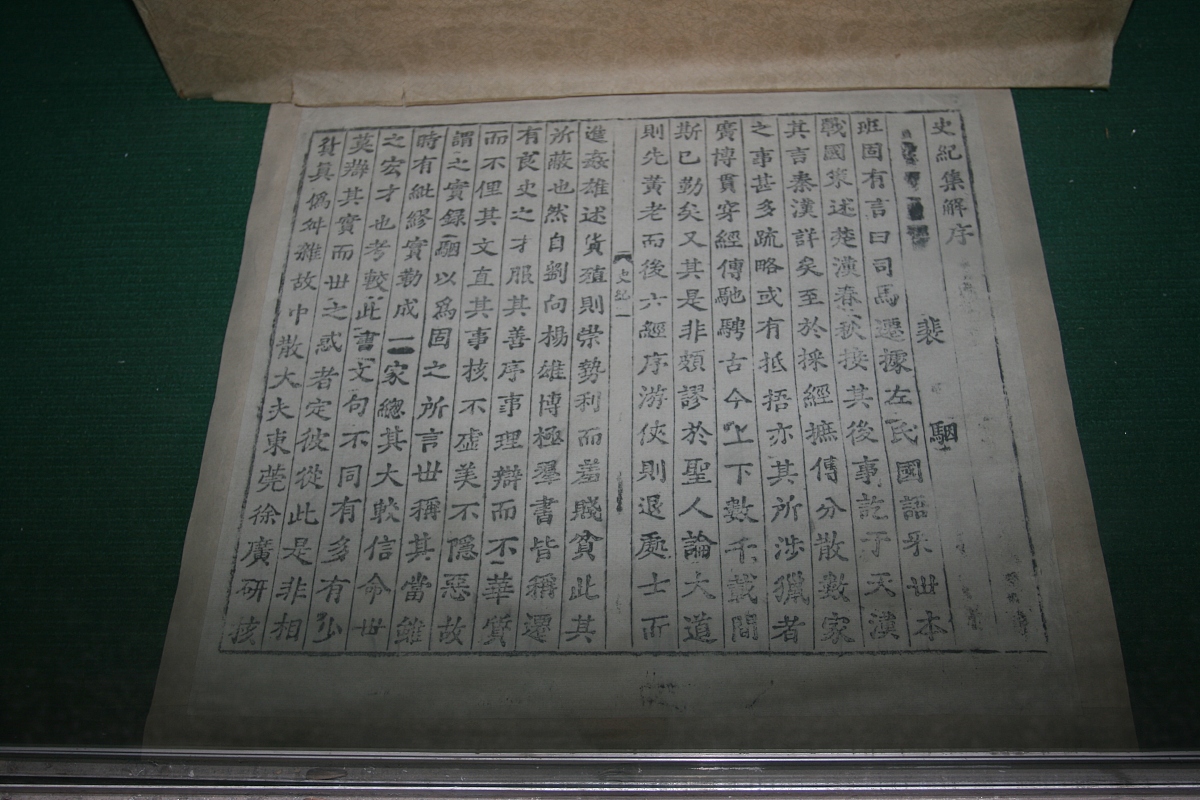 史紀集解序
裴　駰
班固有言曰司馬遷據左氏國語采世本
戰國策述楚漢春秋接其後事訖于天漢
其言秦漢詳矣至於採經摭傳分散數家
之事甚多疏略或有抵捂亦其所涉獵者
廣博貫穿經傳馳騁古今上下數千載間
斯已勤矣又其是非頗謬於聖人論大道
則先黃老而後六經序游俠則退處士而
史紀一
進姦雄述貨殖則崇勢利而羞賤貧此其
所蔽也然自劉向楊雄博極羣書皆稱遷
有良史之才服其善序事理辯而不華質
而不俚其文直其事核不虛美不隱惡故
謂之實録駰以爲固之所言世稱其當雖
時有紕繆實勒成一家總其大較信命世
之宏才也考較此書文句不同有多有少
莫辯其實而世之惑者定彼從此是非相
貿真僞舛雜故中散大夫東莞徐廣研核